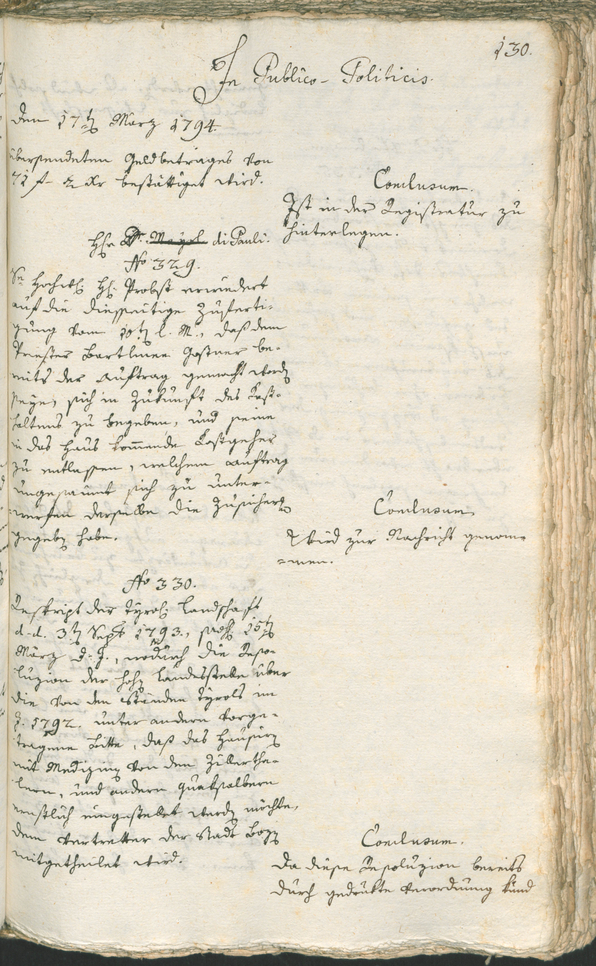 130.
In Publico-Politicis.
den 17t März 1794.
übersendeten Geldbetrages von
72 f - x Kr bestättiget wird.
Conclusum.
Ist in der Registratur zu
hinterlegen.
Hr. di Pauli.
No 329.
Se Hochw. H. Probst erwiedert
auf die diesseitige Zuferti-
gung vom 10t l. M., daß dem
Priester Bartlmee Gostner be-
reits der Auftrag gemacht worden
seye, sich in Zukunft des Kost-
haltens zu begeben, und seine
in das Haus kommende Kostgeher
zu entlassen, welchem Auftrag
ungesäumt sich zu unter-
werfen derselbe die Zusicherung
gegeben habe.
Conclusum
Wird zur Nachricht genom-
=men.
No 330.
Reskript der tyrol. Landschaft
d. d. 3t Sept 1793., 15t
März d. J., wodurch die Reso-
luzion der hohen Landesstelle über
die von den Ständen Tyrols im
J. 1792. unter andern vorge-
tragene Bitte, daß das Hausiren
mit Medizin von den Zillertha-
lern, und andern Quaksalbern
ernstlich eingestellet werden möchte,
dem Vertretter der Stadt Bozen
mitgetheilet wird.
Conclusum.
Da diese Resoluzion bereits
durch gedrukte Verordnung kund